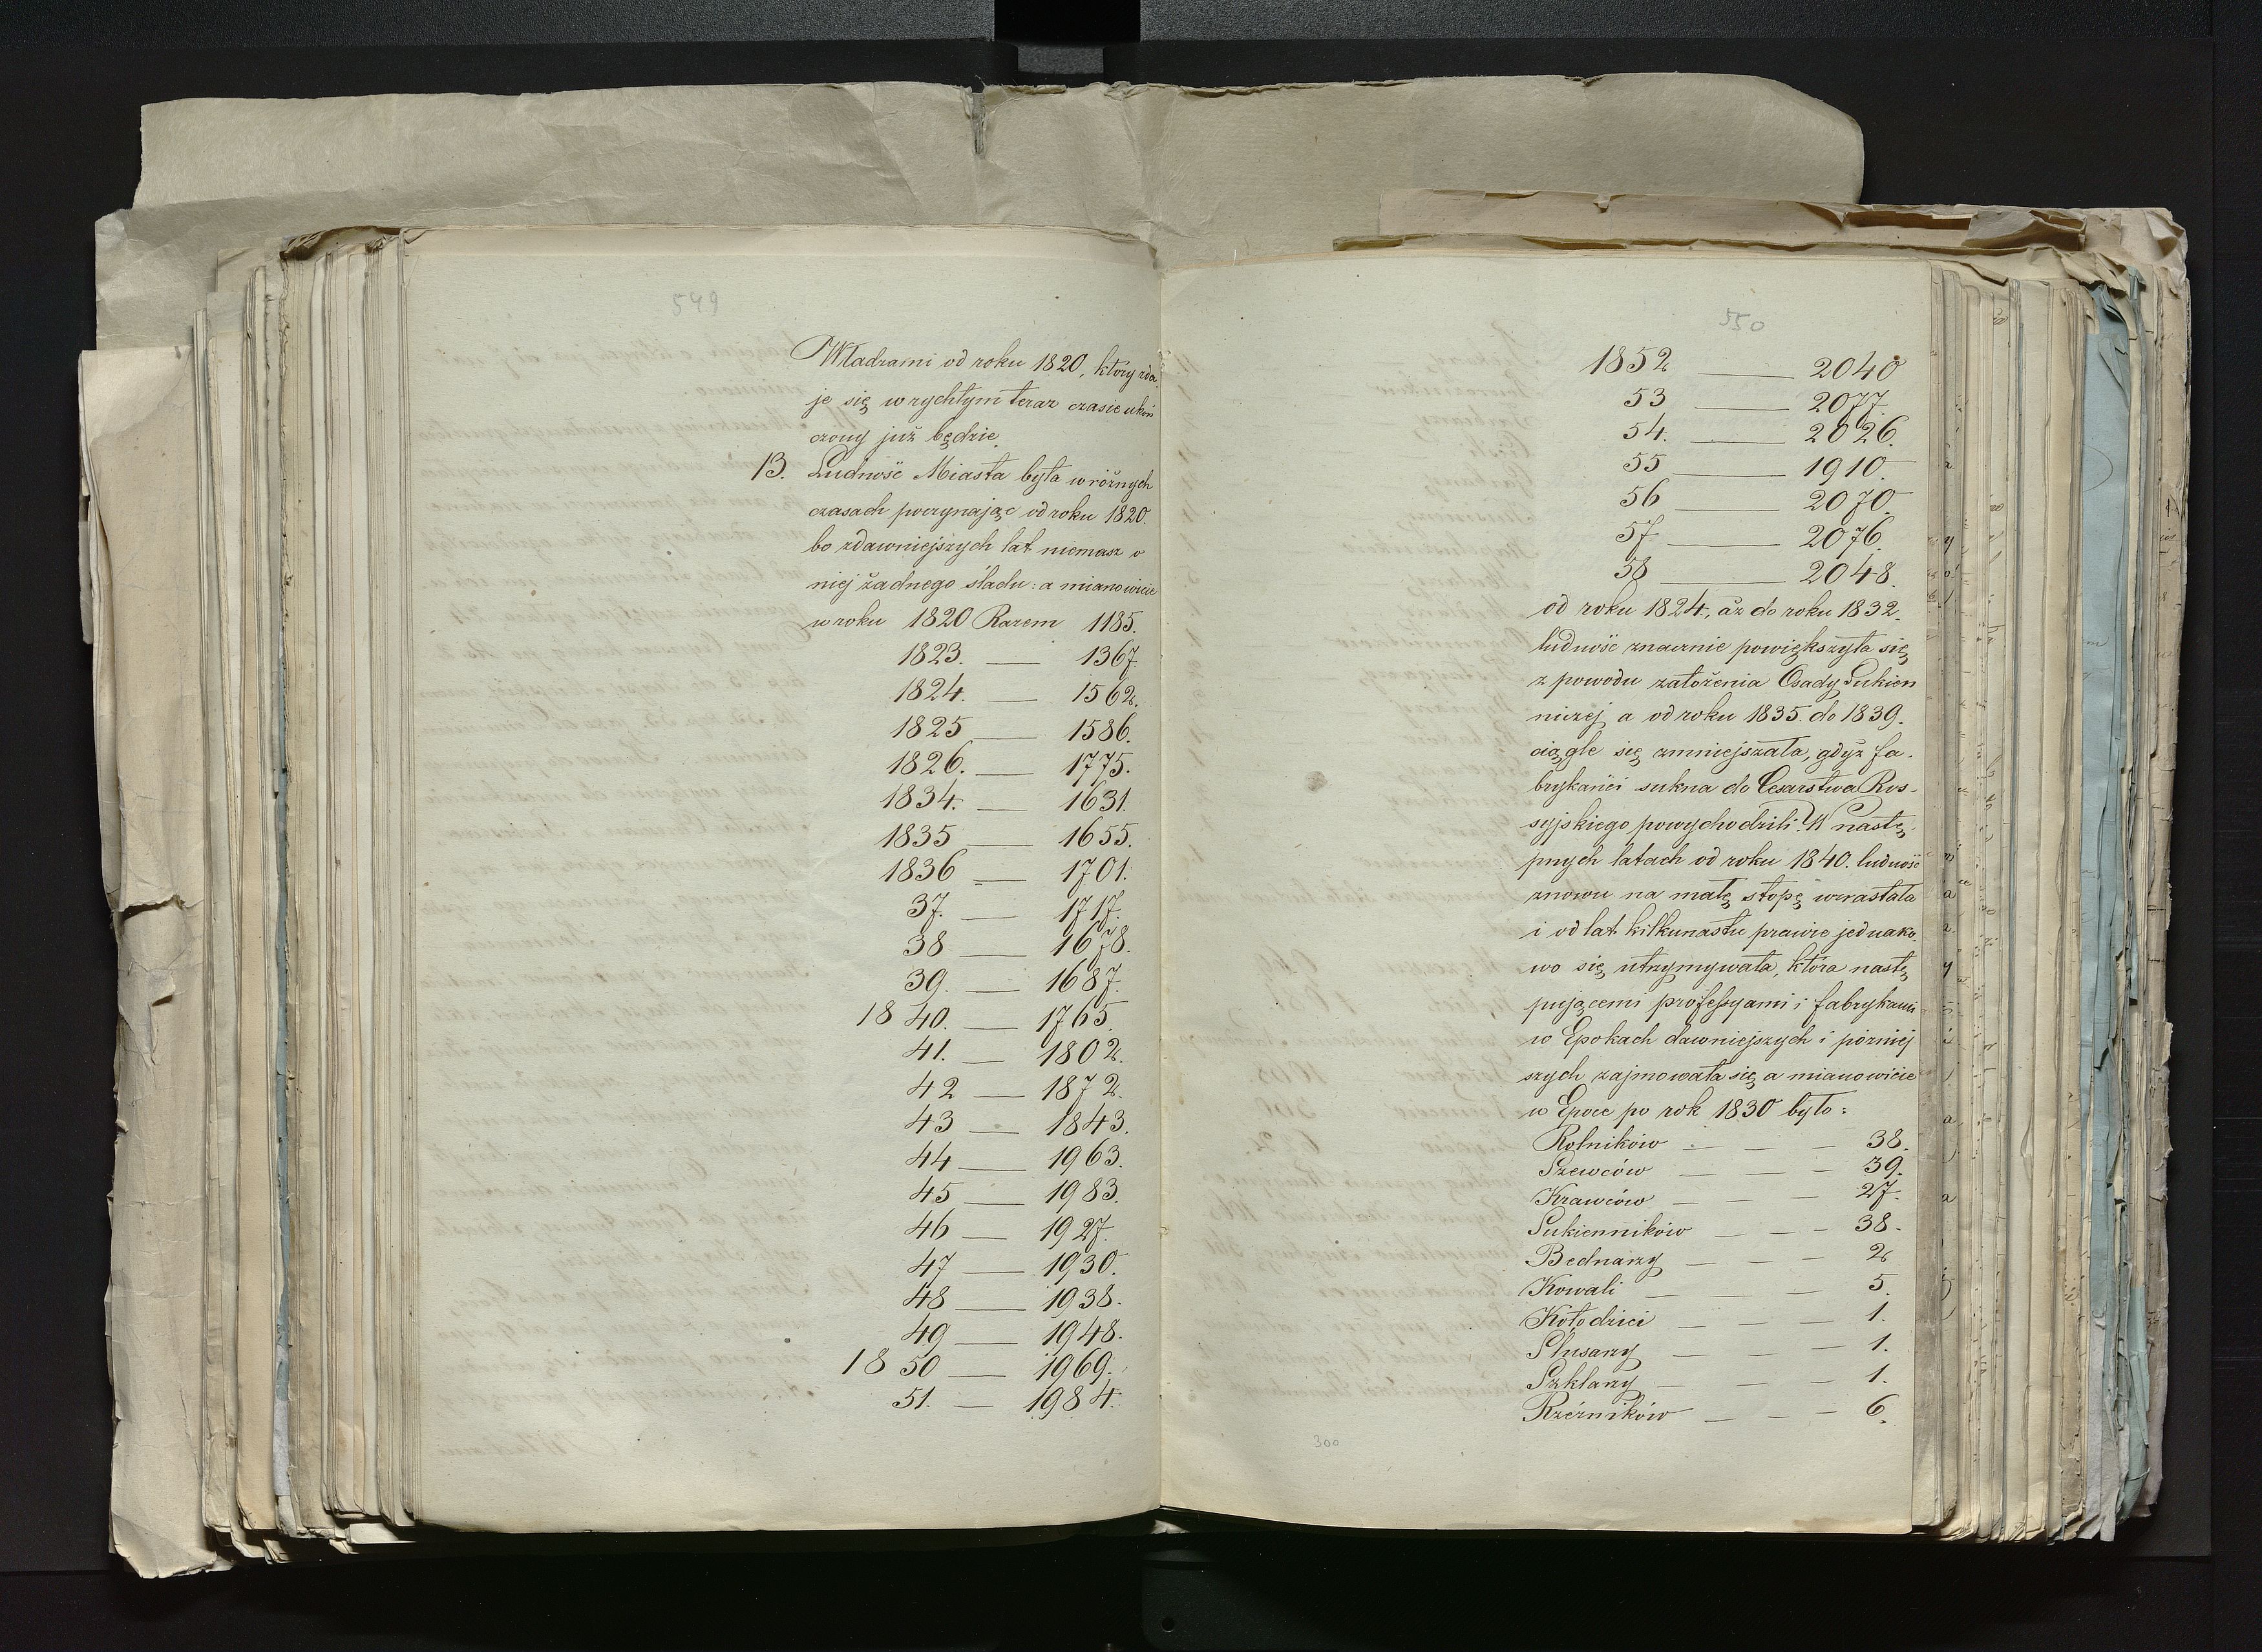 549
Władzami od roku 1820, który zda
je się w rychłym teraz czasie ukoń
czony już będzie.
13. Ludność Miasta była w różnych
czasach poczynając od roku 1820.
bo z dawniejszych lat niemasz o
niej żadnego śladu: a mianowicie
w roku 1820 Razem 1185.
1823. — 1367
1824. — 1562.
1825 — 1586.
1826. — 1775.
1834. — 1631.
1835 — 1655.
1836 — 1701.
37. — 1717.
38 — 1678.
39. — 1687.
1840. — 1765.
41. — 1802.
42 — 1872.
43 — 1843.
44 — 1963.
45 — 1983.
46 — 1927.
47 — 1930.
48 — 1938.
49 — 1948.
1850 — 1969.
51. — 1984.
550
1852 — 2040
53 — 2077.
54. — 2026.
55 — 1910.
56 — 2070.
57 — 2076.
58 — 2048.
od roku 1824, aż do roku 1832.
ludność znacznie powiększyła się
z powodu założenia Osady Sukien
niczej, a od roku 1835. do 1839.
ciągle się zmniejszała, gdyż fa-
brykańci sukna do Cesarstwa Ros-
syjskiego powychodzili. W nastę-
pnych latach od roku 1840. ludność
znowu na małę stopę wzrastała
i od lat kilkunastu prawie jednako
wo się utrzymywała, która nastę
pującemi professyami i fabrykami
w Epokach dawniejszych i pózniej
szych zajmowała się, a mianowicie
w Epoce po rok 1830 było:
Rolników — — — 38.
Szewców — — — 39.
Krawców — — — 27.
Sukienników — — — 38.
Bednarzy — — — 2
Kowali — — — 5.
Kołodzici — — — 1.
Slusarzy — — — 1.
Szklarzy — — — 1.
Rzeźników — — — 6.
300